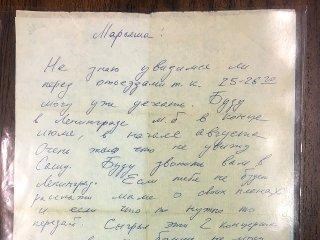 Марьяша!
Не знаю увидимся ли
перед отъездами т.к. 25-26го
могу уже уехать. Буду
в Ленинграде м.б. в конце
июля, в начале августа
Очень жалею что не увижу
Сашу. Буду звонить вам в
Ленинград. Если тебя не будет
расскажи маме о своих планах
и если что-то нужно то
передай. Сыграл эти 2 концерта